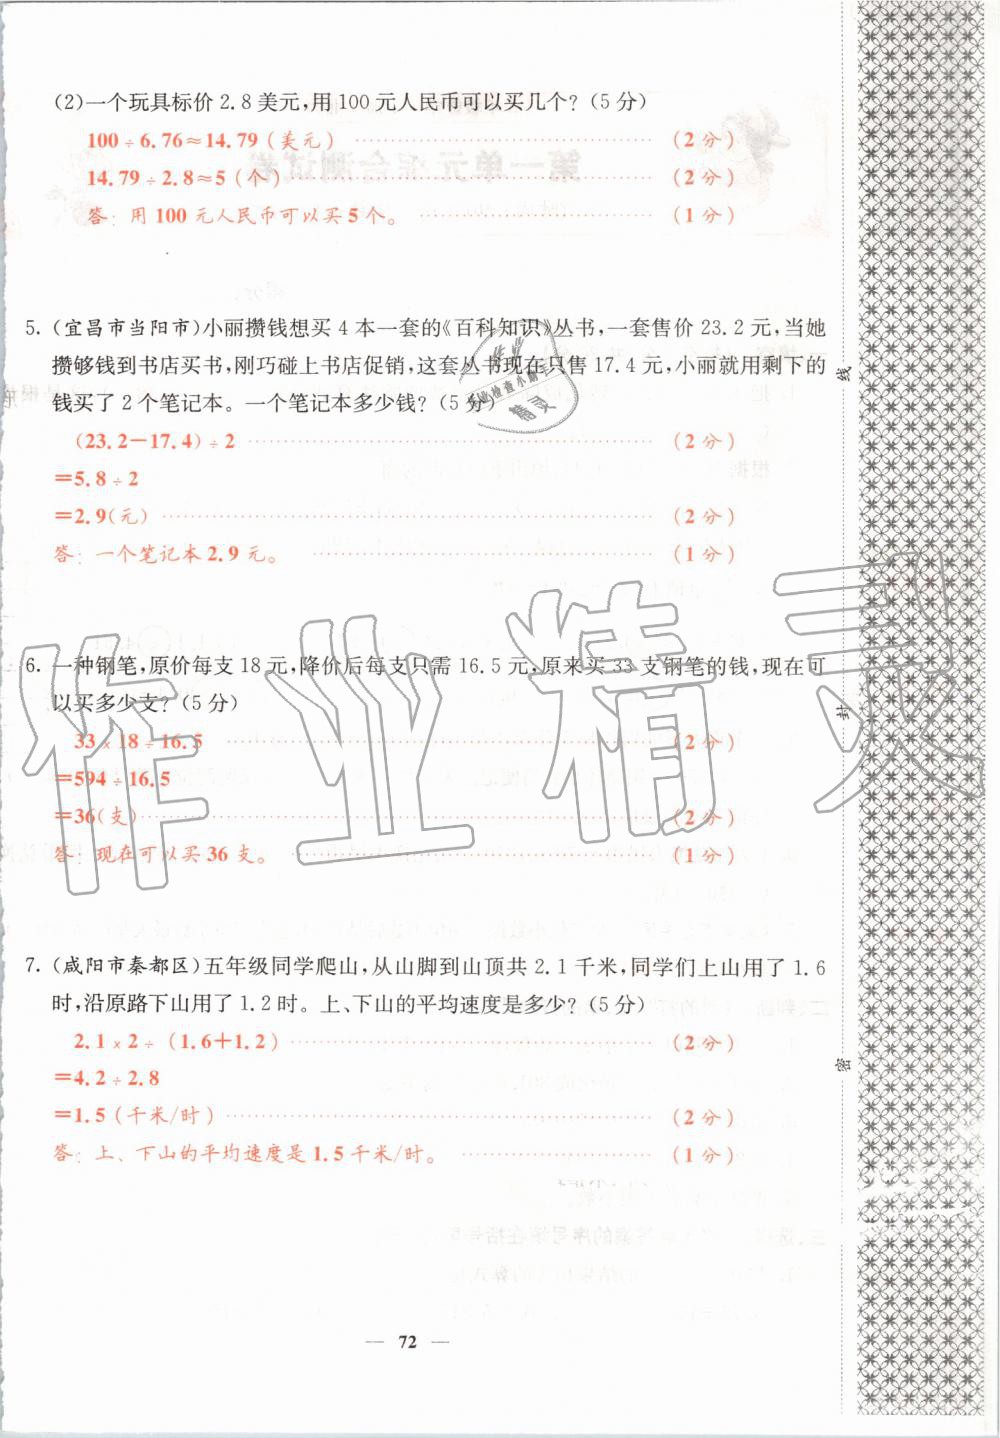 (2)一个玩具标价2.8美元,用100元人民币可以买几个?(5分)
100÷6.76≈14.79(美元)(2分)
14.79÷2.8≈5(个)(2分)
答:用100元人民币可以买5个。(1分)
5.(宜昌市当阳市)小丽攒钱想买4本一套的《百科知识》丛书,一套售价23.2元,当她
攒够钱到书店买书,刚巧碰上书店促销,这套丛书现在只售17.4元,小丽就用剩下的
钱买了2个笔记本。一个笔记本多少钱?(5分)
(23.2-17.4)÷2(2分)
=5.8÷2
=2.9(元)(2分)
答:一个笔记本2.9元。(1分)
6.一种钢笔,原价每支18元,降价后每支只需16.5元,原来买33支钢笔的钱,现在可
以买多少支?(5分)
33×18÷16.5(2分)
=594÷16.5
=36(支)(2分)
答:现在可以买36支。(1分)
7.(咸阳市秦都区)五年级同学爬山,从山脚到山顶共2.1千米,同学们上山用了1.6
时,沿原路下山用了1.2时。上、下山的平均速度是多少?(5分)
2.1×2÷(1.6+1.2)(2分)
=4.2÷2.8
=1.5(千米/时)(2分)
答:上、下山的平均速度是1.5千米/时。(1分)
— 72 —
线
封
密
作业精灵
精灵